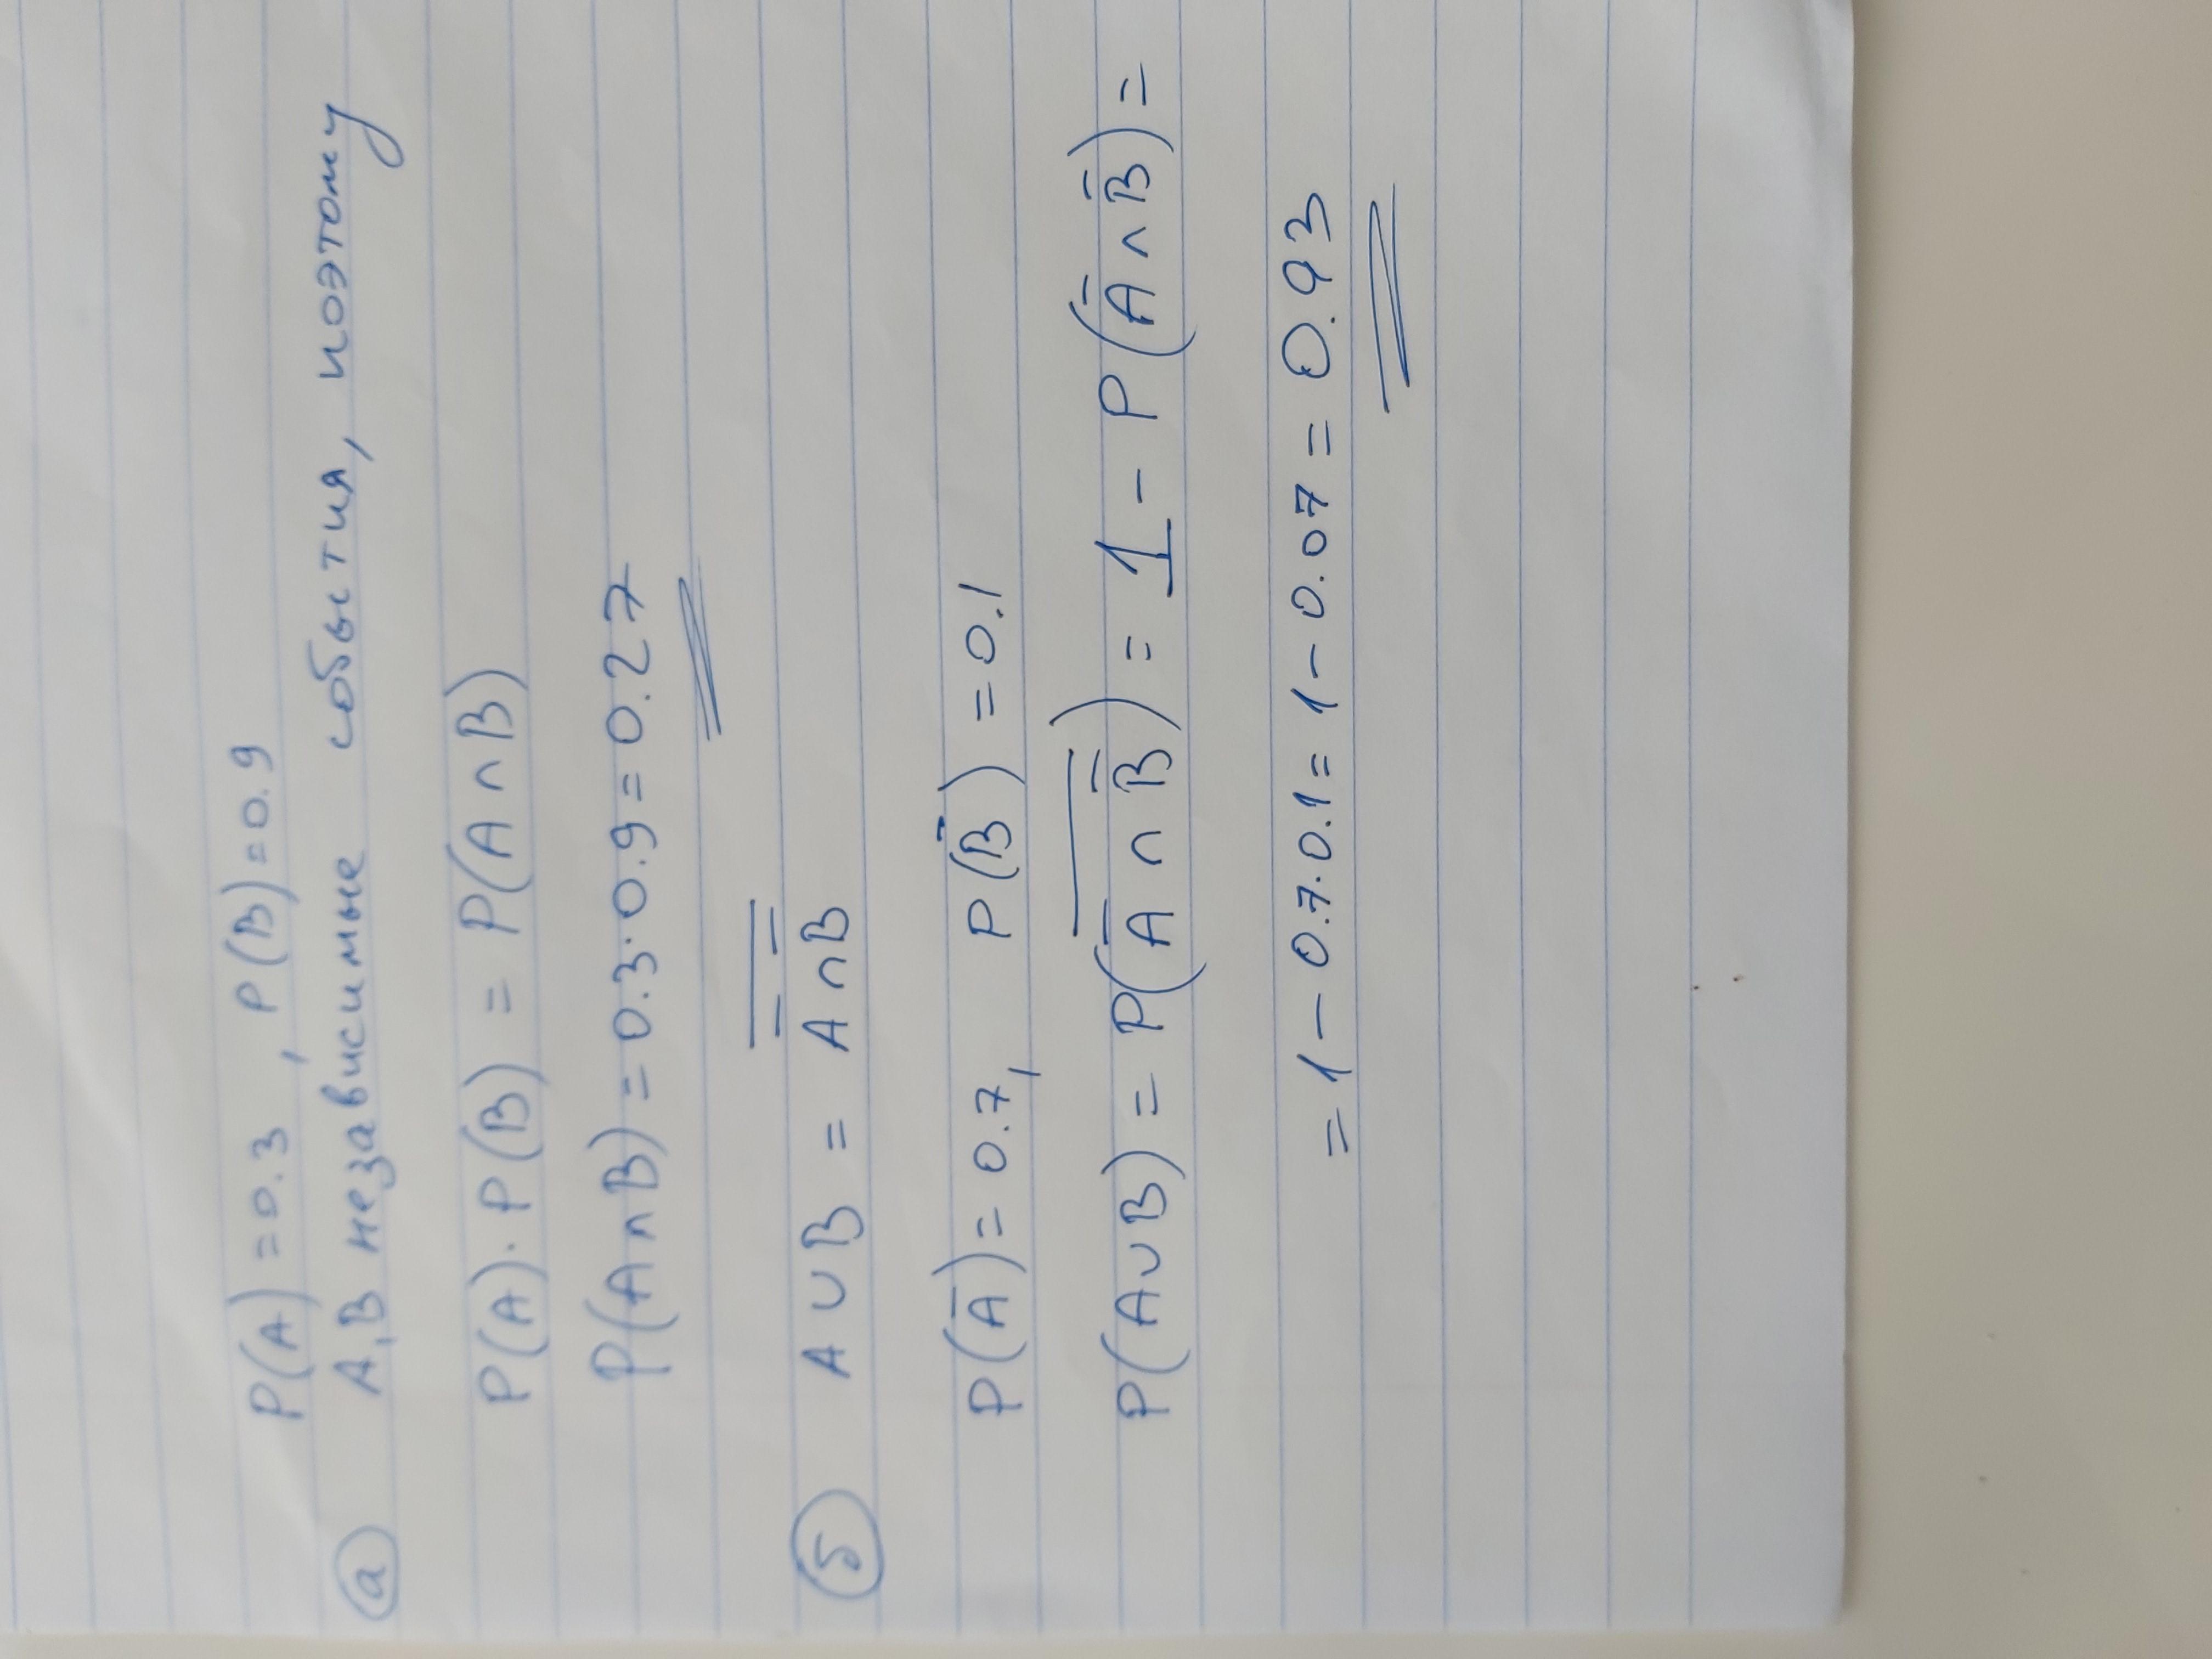 P(A)=0.3, P(B)=0.9
(а) A,B независимые события, поэтому
P(A)·P(B) = P(A∩B)
P(A∩B) = 0.3·0.9 = 0.27
(б) A∪B = \overline{\overline{A}∩\overline{B}}
P(\overline{A}) = 0.7, P(\overline{B}) = 0.1
P(A∪B) = P(\overline{\overline{A}∩\overline{B}}) = 1 - P(\overline{A}∩\overline{B}) =
= 1 - 0.7·0.1 = 1 - 0.07 = 0.93